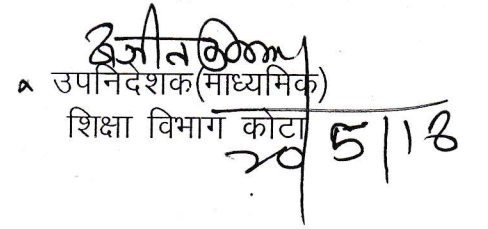 अजीत
उपनिदेशक(माध्यमिक)
शिक्षा विभाग कोटा
20/5/18